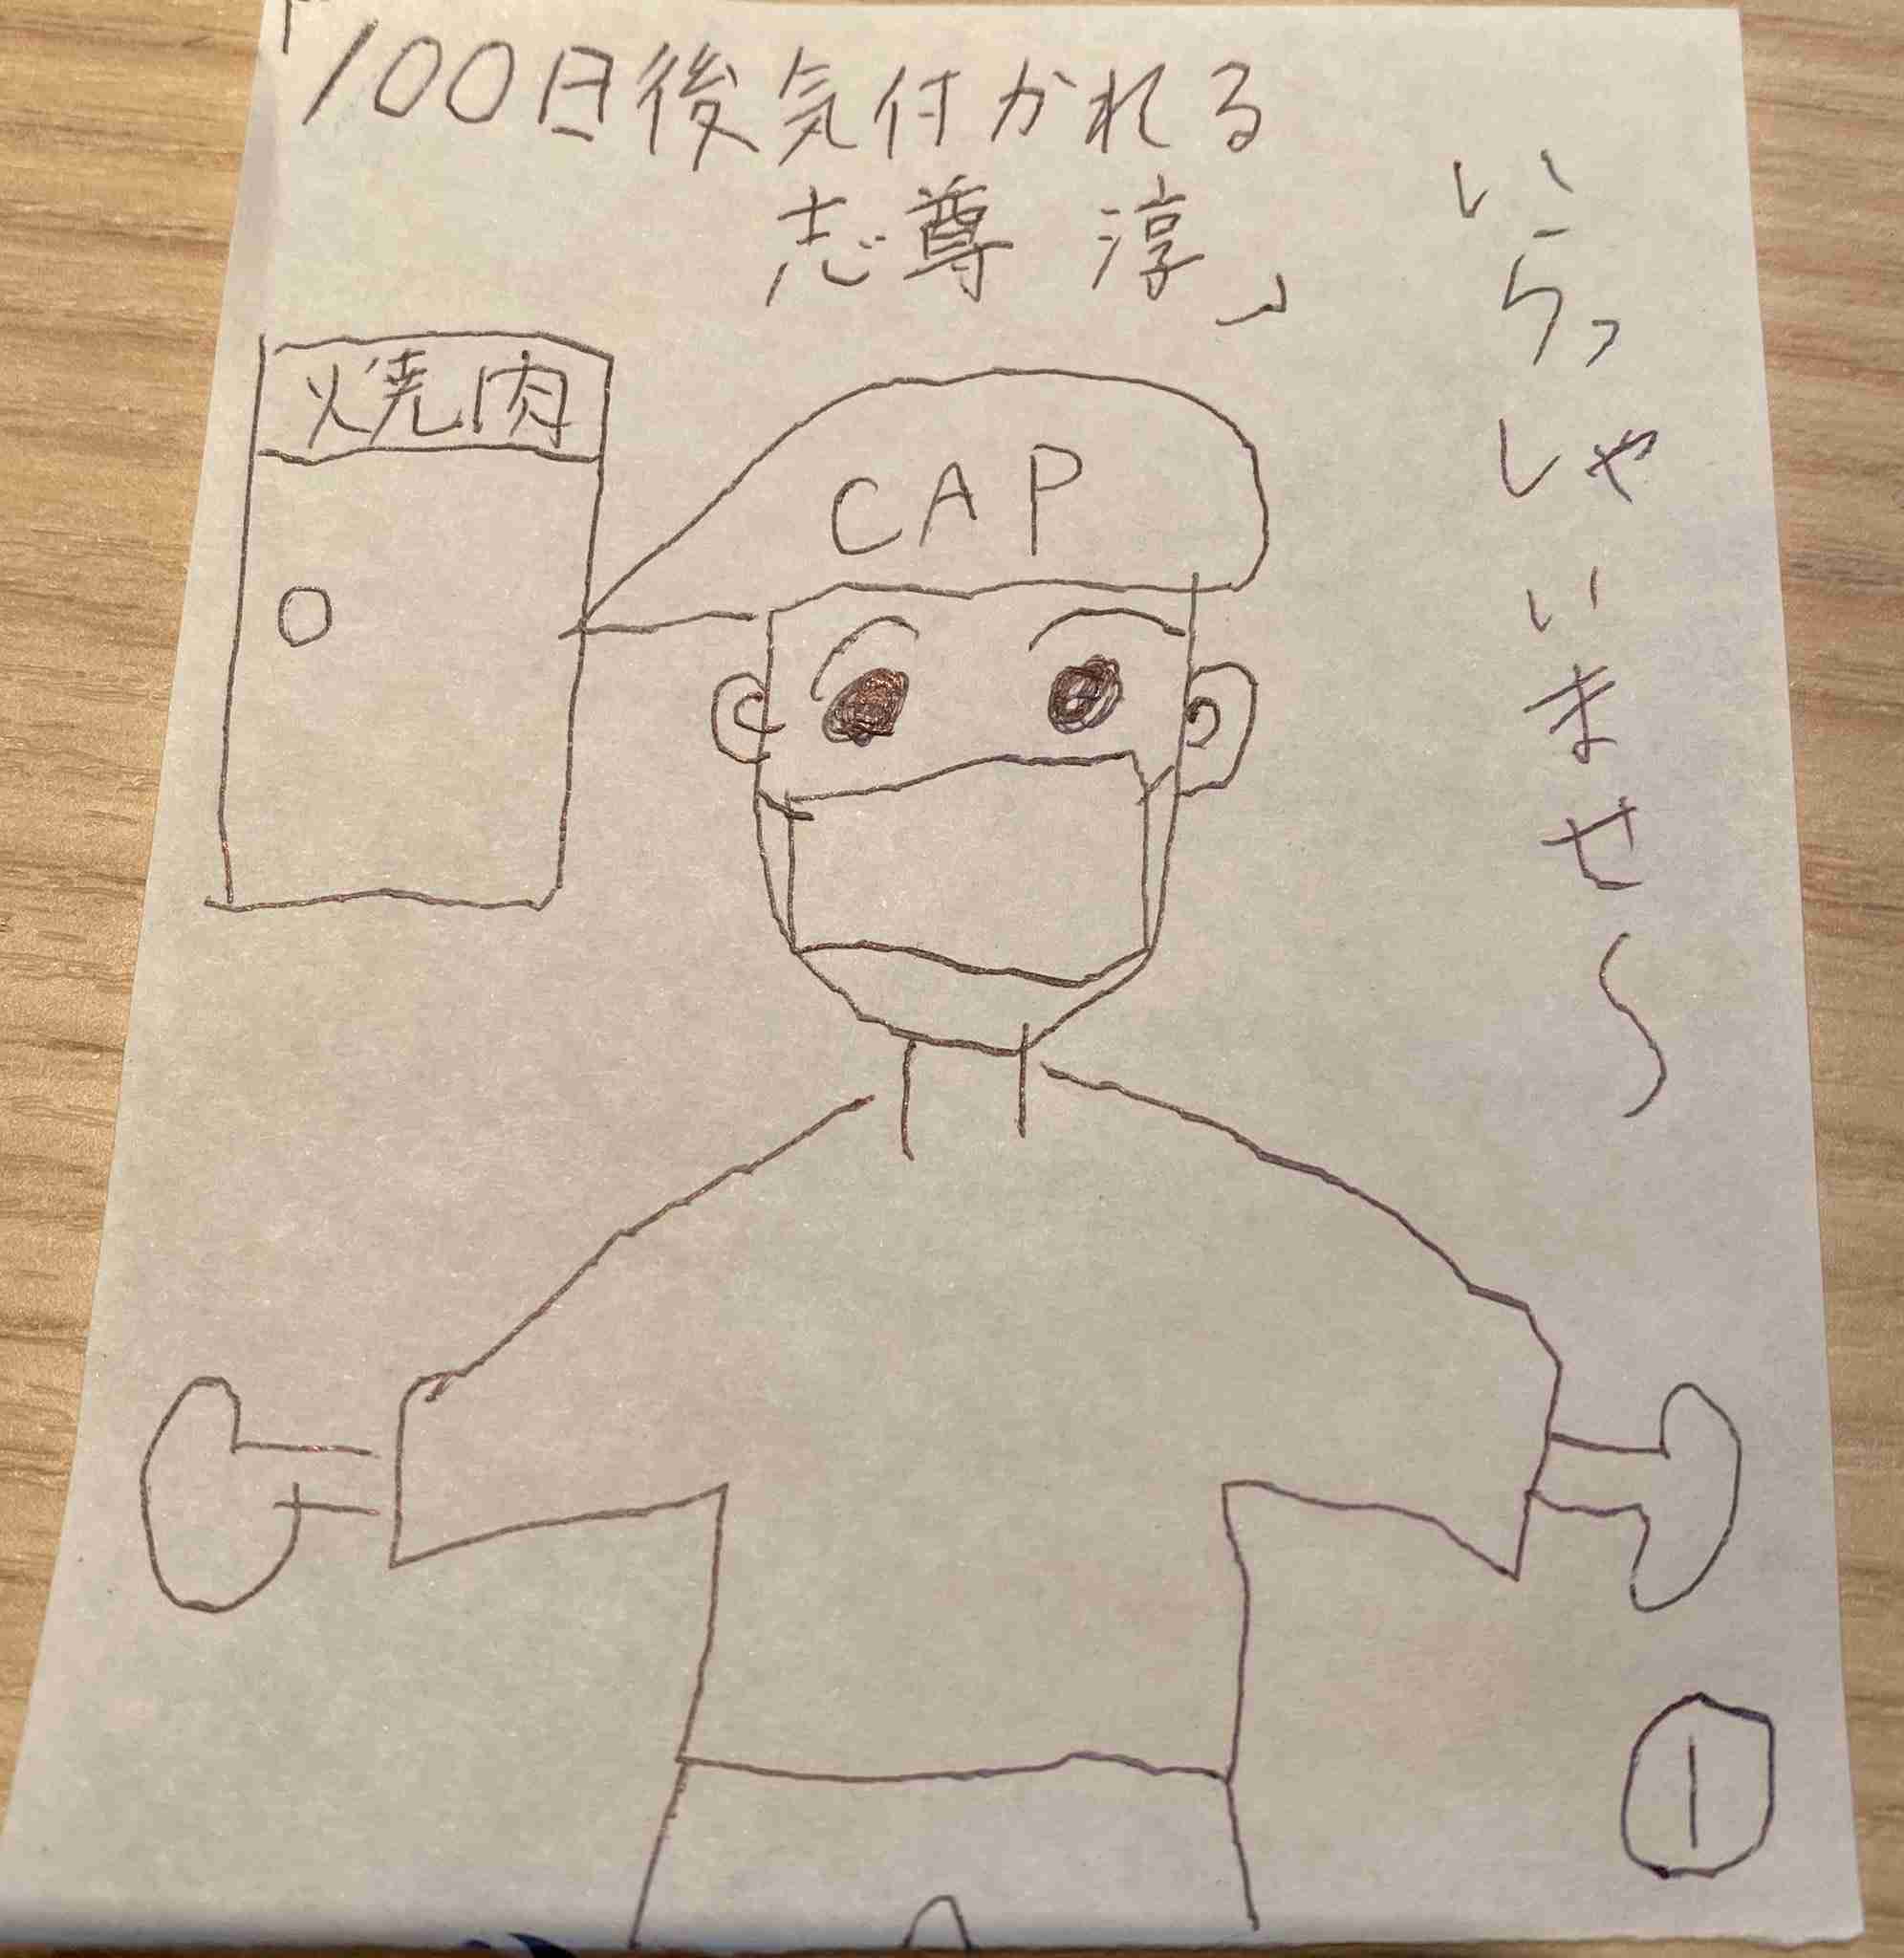 「100日後気付かれる
志尊 淳」
いらっしゃいませ〜
焼肉
CAP
1